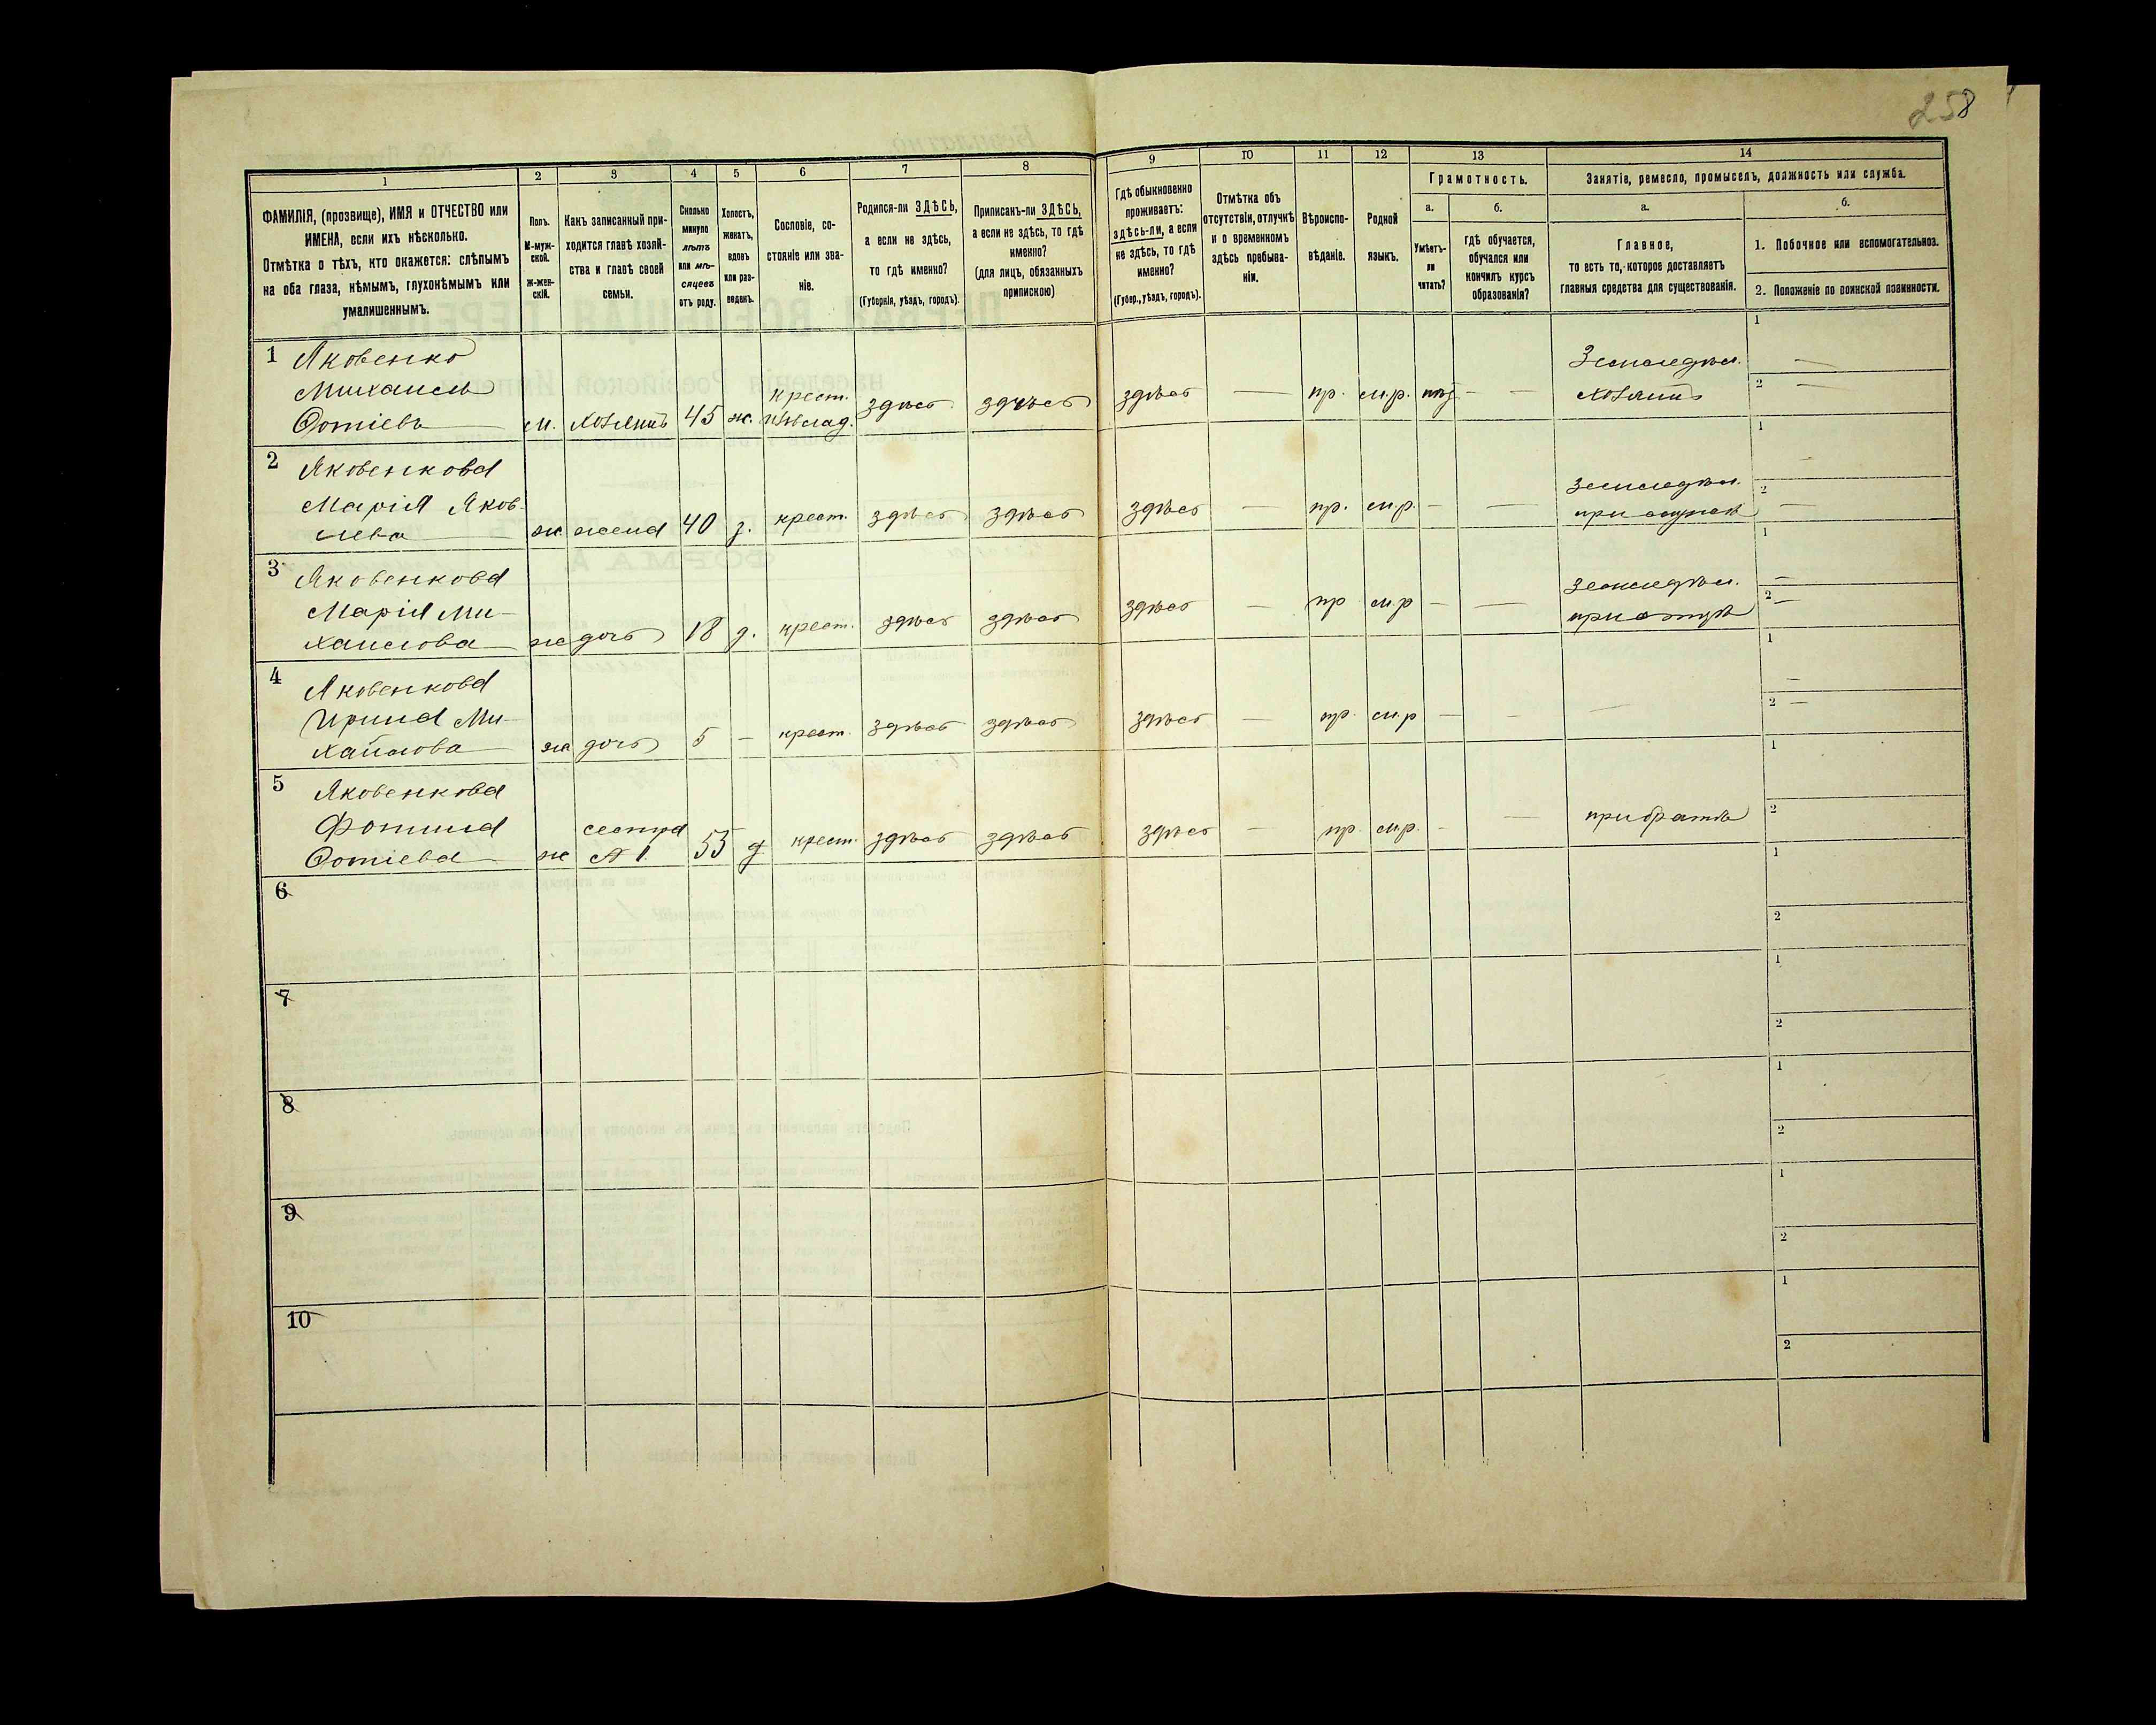 258
1 2 3 4 5 6 7 8 9 10 11 12 13 14
ФАМИЛІЯ, (прозвище), ИМЯ и ОТЧЕСТВО или
ИМЕНА, если ихъ нѣсколько.
Отмѣтка о тѣхъ, кто окажется: слѣпымъ
на оба глаза, нѣмымъ, глухонѣмымъ или
умалишеннымъ.
Полъ.
М-муж-
ской.
Ж-жен-
скій.
Какъ записанный при-
ходится главѣ хозяй-
ства и главѣ своей
семьи.
Сколько
минуло
лѣтъ
или мѣ-
сяцевъ
отъ роду.
Холостъ,
женатъ,
вдовъ
или раз-
веденъ.
Сословіе, со-
стояніе или зва-
ніе.
Родился-ли ЗДѢСЬ,
а если не здѣсь,
то гдѣ именно?
(Губернія, уѣздъ, городъ).
Приписанъ-ли ЗДѢСЬ,
а если не здѣсь, то гдѣ
именно?
(для лицъ, обязанныхъ
припискою)
Гдѣ обыкновенно
проживаетъ:
здѣсь-ли, а если
не здѣсь, то гдѣ
именно?
(Губер., уѣздъ, городъ).
Отмѣтка объ
отсутствіи, отлучкѣ
и о временномъ
здѣсь пребыва-
ніи.
Вѣроиспо-
вѣданіе.
Родной
языкъ.
Грамотность.
а.
Умѣетъ-
ли
читать?
б.
гдѣ обучается,
обучался или
кончилъ курсъ
образованія?
Занятіе, ремесло, промыселъ, должность или служба.
а.
Главное,
то есть то, которое доставляетъ
главныя средства для существованія.
б.
1. Побочное или вспомогательное.
2. Положеніе по воинской повинности.
1 Яковенко
Михаилъ
Ѳотіевъ м. хозяинъ 45 ж. крест. владѣ. здѣсь здѣсь здѣсь — пр. м.р. — — Земледѣл.
хозяинъ 1 — 2 —
2 Яковенкова
Марія Яков-
лева ж жена 40 з. крест. здѣсь здѣсь здѣсь — пр. м.р. — — земледѣл.
при мужѣ 1 — 2 —
3 Яковенкова
Марія Ми-
хаилова ж дочь 18 д. крест. здѣсь здѣсь здѣсь — пр м.р — — земледѣл.
при отцѣ 1 — 2 —
4 Яковенкова
Ирина Ми-
хайлова ж дочь 5 — крест. здѣсь здѣсь здѣсь — пр. м.р — — — 1 — 2 —
5 Яковенкова
Фотина
Ѳотіева ж сестра
№ 1. 55 д крест. здѣсь здѣсь здѣсь — пр. м.р. — — при братѣ 1 2
6 1 2
7 1 2
8 1 2
9 1 2
10 1 2